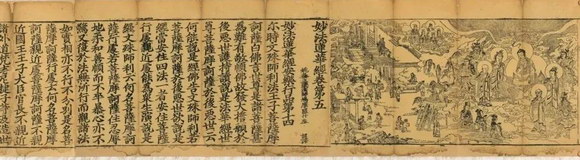 妙法蓮華經卷第五
妙法蓮華經安樂行品第十四
尒時文殊師利法王子菩薩摩
訶薩白佛言世尊是諸菩薩甚
為難有敬順佛故發大誓願於
後惡世護持讀說是法華經世
尊菩薩摩訶薩於後惡世云
何能說是經佛告文殊師利若
菩薩摩訶薩於後惡世欲說是
經當安住四法一者安住菩薩
行處親近處能為衆生演說是
經文殊師利云何名菩薩摩訶
薩行處若菩薩摩訶薩住忍辱
地柔和善順而不卒暴心亦不
驚又復於法無所行而觀諸法
如實相亦不行不分別是名菩
薩摩訶薩行處云何名菩薩摩
訶薩親近處菩薩摩訶薩不親
近國王王子大臣官長不親近
諸外道梵志尼揵子等及造世